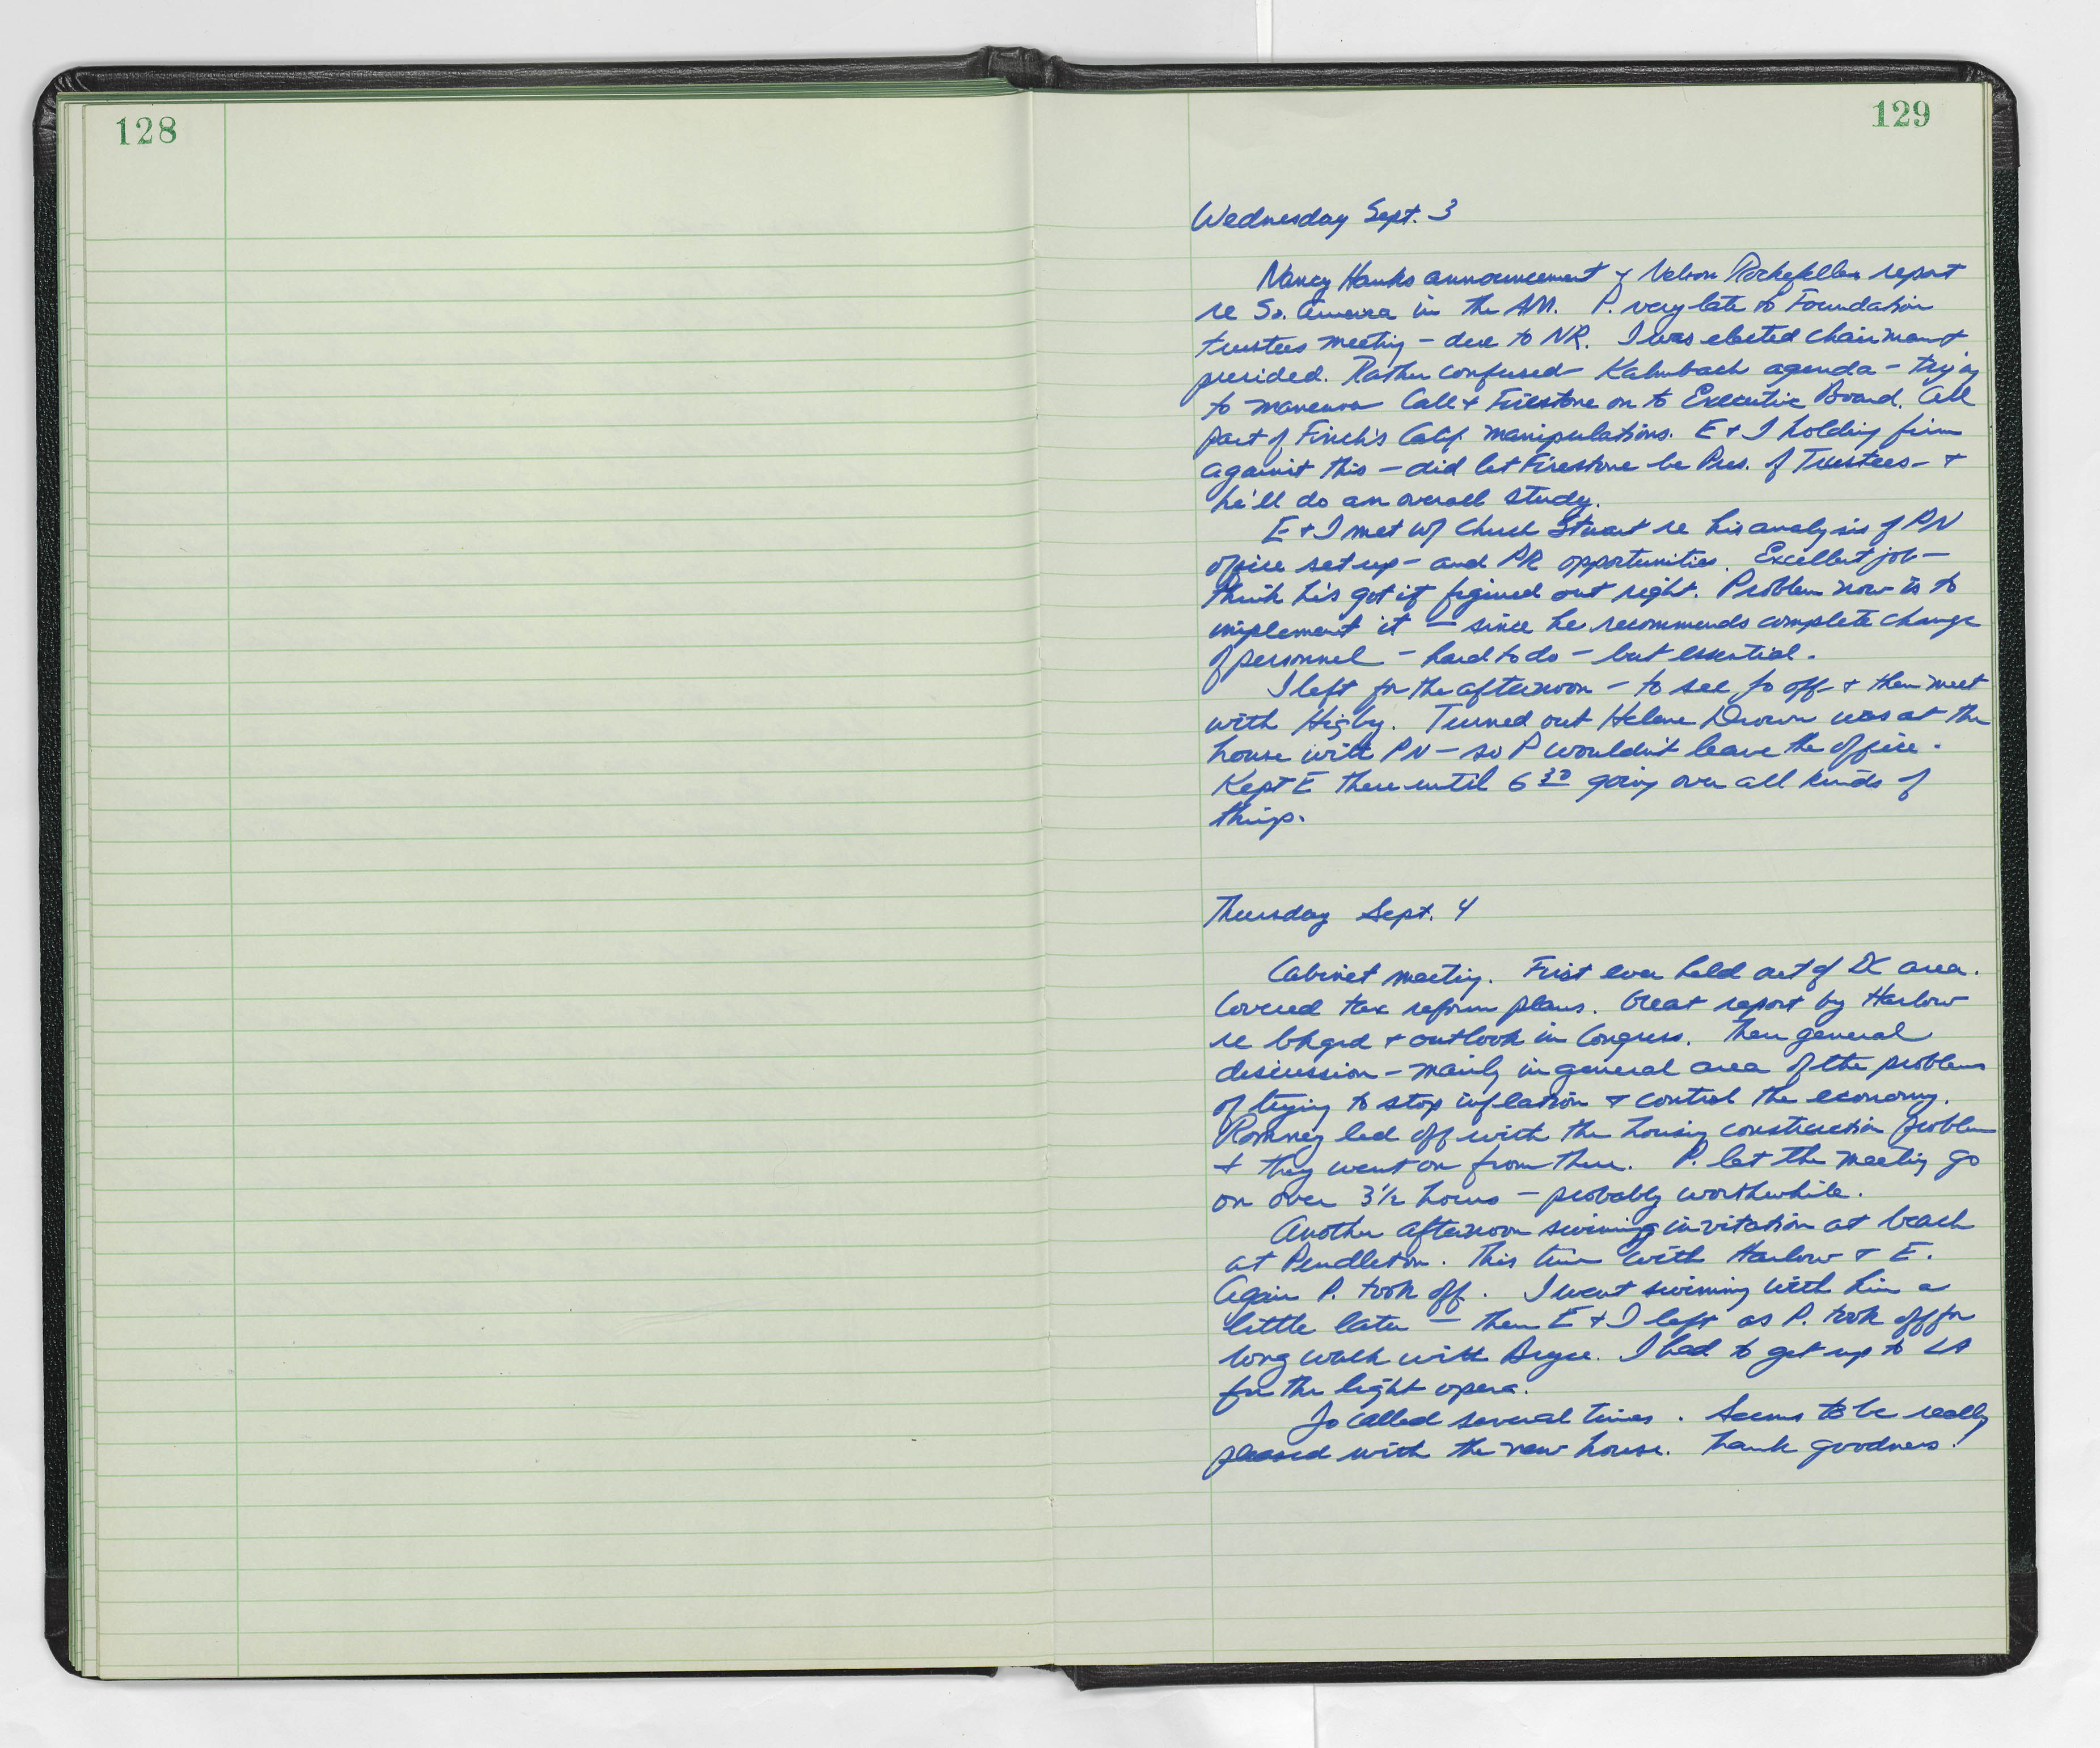 128
129
Wednesday Sept. 3
Nancy Hanks announcement & Nelson Rockefeller report
re So. America in the AM. P. very late to Foundation
trustees meeting – due to NR. I was elected chairman &
presided. Rather confused Kalmbach agenda – trying
to maneuver Call & Firestone on to Executive Board. All
part of Finch's Calif. manipulations. E & I holding firm
against this – did let Firestone be Pres. of Trustees – &
he'll do an overall study.
E & I met w/ Chuck Stuart re his analysis of PN
office set up – and PR opportunities. Excellent job –
think he's got it figured out right. Problem now is to
implement it – since he recommends complete change
of personnel – hard to do – but essential.
I left for the afternoon – to see Jo off – & then meet
with Higby. Turned out Helene Drown was at the
house with PN – so P wouldn't leave the office.
Kept E there until 6 30 going over all kinds of
things.
Thursday Sept. 4
Cabinet meeting. First ever held out of DC area.
Covered tax reform plans. Great report by Harlow
re bkgrd & outlook in Congress. Then general
discussion – mainly in general area of the problems
of trying to stop inflation & control the economy.
Romney led off with the housing construction problem
& they went on from there. P. let the meeting go
on over 3½ hours – probably worthwhile.
Another afternoon swimming invitation at beach
at Pendleton. This time with Harlow & E.
Again P. took off. I went swimming with him a
little later – then E & I left as P. took off for
long walk with Bryce. I had to get up to LA
for the light opera.
Jo called several times. Seems to be really
pleased with the new house. Thank goodness!